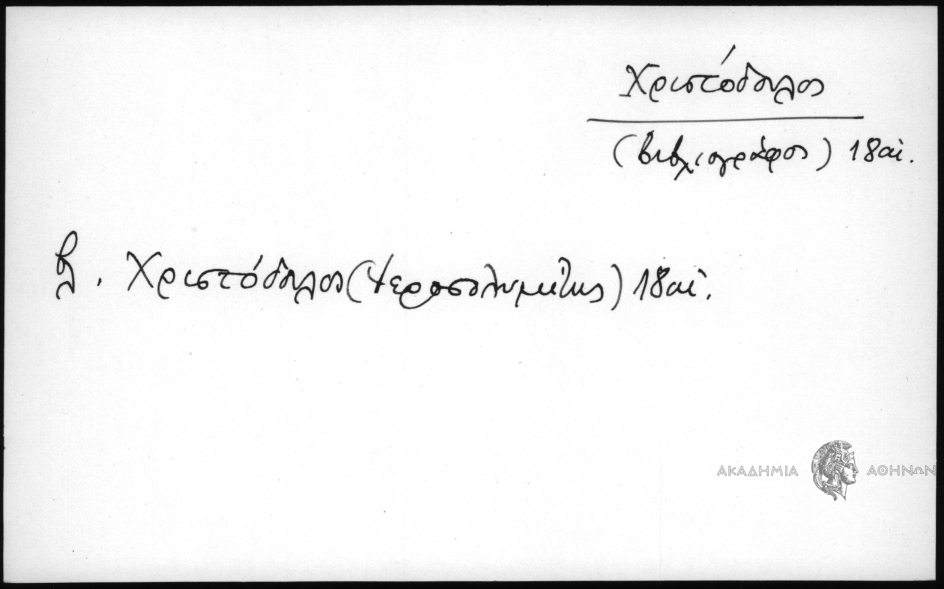 Χριστόδουλος
(βιβλιογράφος) 18 αἰ.
βλ. Χριστόδουλος (Ἱεροσολυμίτης) 18 αἰ.
ΑΚΑΔΗΜΙΑ ΑΘΗΝΩΝ